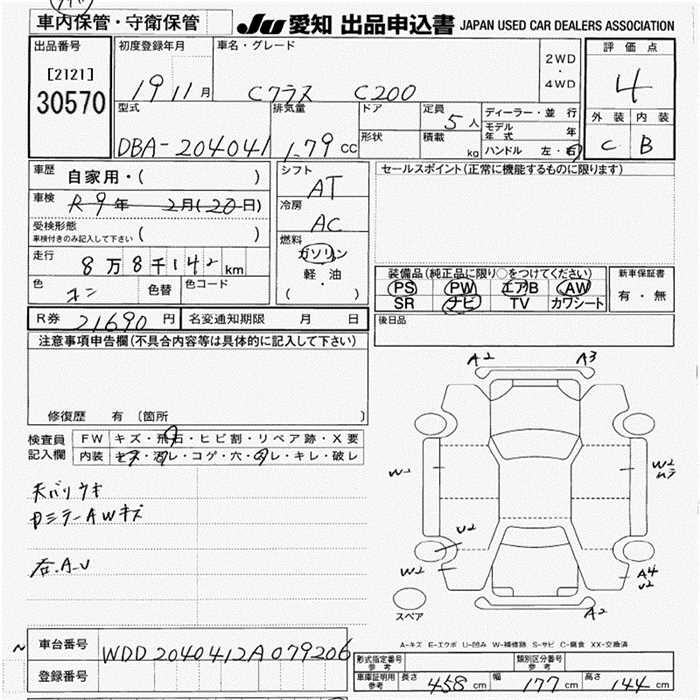 車内保管・守衛保管
JU 愛知 出品申込書 JAPAN USED CAR DEALERS ASSOCIATION
出品番号
[2121]
30570
初度登録年月
19 11月
車名・グレード
Cクラス C200
2WD
・
4WD
評価点
4
外装 内装
C B
型式
DBA-204041
排気量
1.79 cc
ドア
形状
定員
5人
積載
kg
ディーラー・並行
モデル年式 年
ハンドル 左・右
車歴 自家用・( )
車検 R9年 2月(20日)
受検形態
車検付きのみ記入して下さい ( )
走行 8万8千142km
色 コン 色替 色コード
シフト
AT
冷房
AC
燃料
ガソリン
軽・油
( )
セールスポイント(正常に機能するものに限ります)
装備品(純正品に限り○をつけてください)
PS PW エアB AW
SR ナビ TV カワシート
新車保証書
有・無
R券 21690円 名変通知期限 月 日
後日品
注意事項申告欄(不具合内容等は具体的に記入して下さい)
修復歴 有 〔箇所 〕
検査員
記入欄
FW キズ・飛石・ヒビ割・リペア跡・X要
内装 キズ・汚レ・コゲ・穴・スレ・キレ・破レ
天バリウキ
カミテーAWキズ
右.A-U
A2 A3
W2 W2
U2
W2 A4
U2
A2
スペア
A-キズ E-エクボ U-凹み W-補修跡 S-サビ C-腐食 XX-交換済
車台番号 WDD2040412A079206
登録番号
形式指定番号
参考
類別区分番号
参考
車庫証明用
参考
長さ 458cm 幅 177cm 高さ 144cm